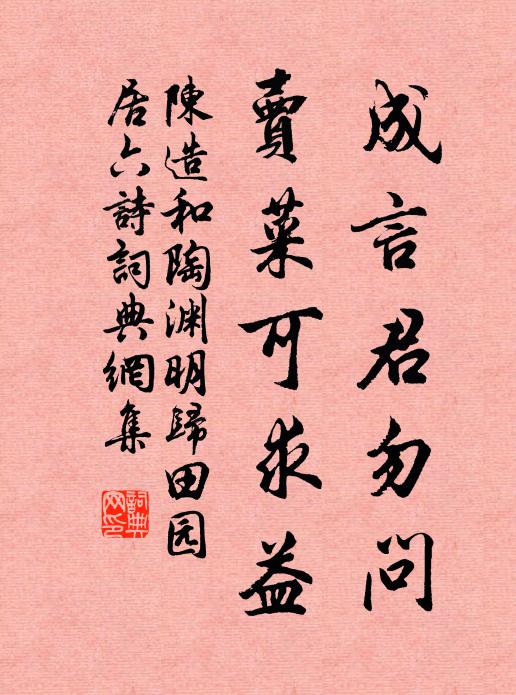 成言君勿問
賣菜可求益
陳造和陶淵明歸田园
居六詩詞典網集
詞典网印